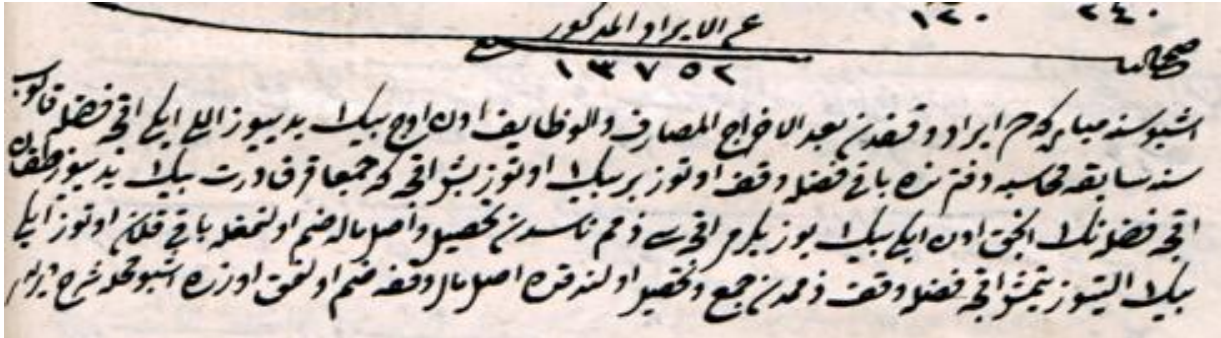 ١٢٠ ٢٤٠
عن الايراد المذكور
صح الباقى
١٣٧٥٢
اشبو سنه مباركه م ايراد وقفدن بعد الاخراج المصارف والوظايف اون اوچ بيك يديیوز اللى ايكى اقچه فضله قالوب
سنه سابقه محاسبه دفترنده باقى فضله وقف اوتوز بر بيك اوتوز بش اقچه كه جمعا قرق درت بيك يديیوز طقسان
اقچه فضله نك انجق اون ايكى بيك يوز يكرمى اقچه سى ذمم ناسدن تحصيل واصل ماله ضم اولنمغله باقى قلان اوتوز ايكى
بيك التيیوز يتمش اقچه فضله وقف ذممدن جمع وتحصيل اولندقده اصل مال وقفه ضم اولنمق اوزره اشبو محله شرح ويرلدى